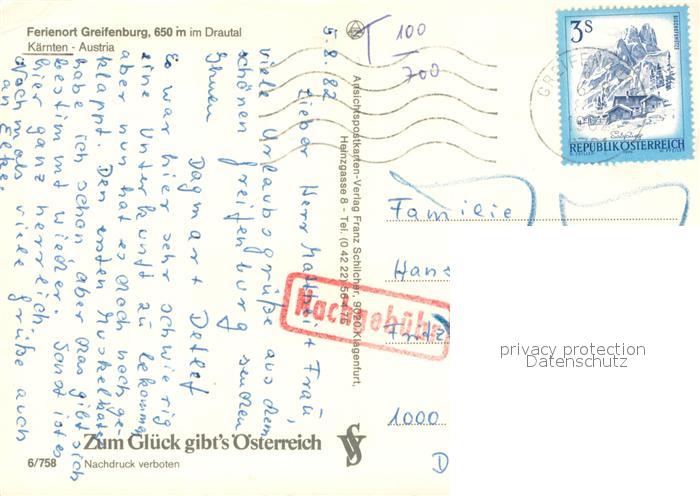 Ferienort Greifenburg, 650 m im Drautal
Kärnten - Austria
5.8.82
Lieber Herr
Frau,
viele Urlaubsgrüße aus dem
schönen Greifenburg senden
Ihnen
Dagmar + Detlef
Es war hier sehr schwierig
eine Unterkunft zu bekommen
aber nun hat es doch noch ge-
klappt. Den ersten Muskelkater
habe ich schon aber das gibt sich
bestimmt wieder. Sonst ist es
hier ganz herrlich.
Nochmals viele Grüße auch
an
Ansichtspostkarten-Verlag Franz Schilcher, 9020 Klagenfurt,
Heinzgasse 8 - Tel. (0 42 22)
T 100
700
3S
REPUBLIK ÖSTERREICH
GREIFEN
Familie
Han
Nachgebühr
1000
D
privacy protection
Datenschutz
Zum Glück gibt's Österreich
6/758
Nachdruck verboten